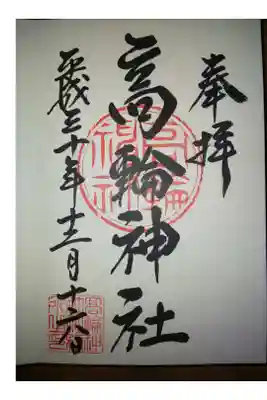 奉拝
高輪神社
平成三十年十二月十六日